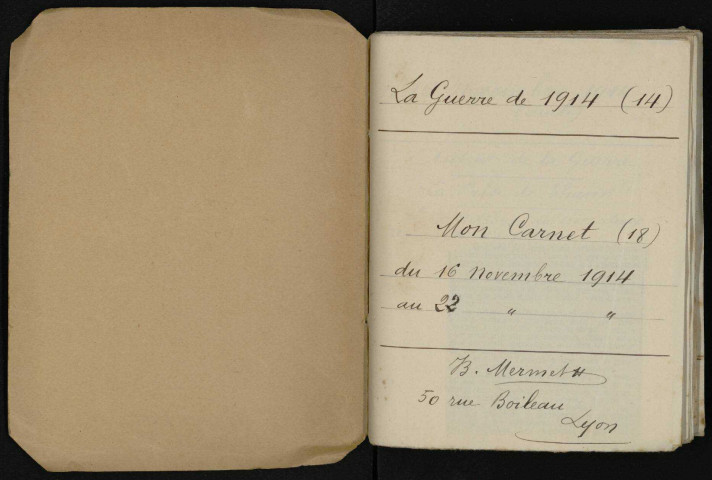 La Guerre de 1914 (14)
Mon Carnet (18)
du 16 novembre 1914
au 22 " "
B. Mermet
50 rue Boileau
Lyon